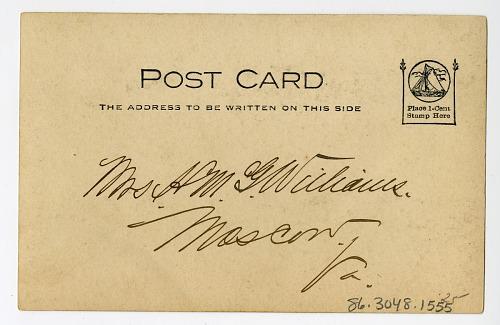 POST CARD
THE ADDRESS TO BE WRITTEN ON THIS SIDE
Place 1-Cent
Stamp Here
Mrs. A. M. G. Williams.
Moscow.
Va.
86.3048.1555